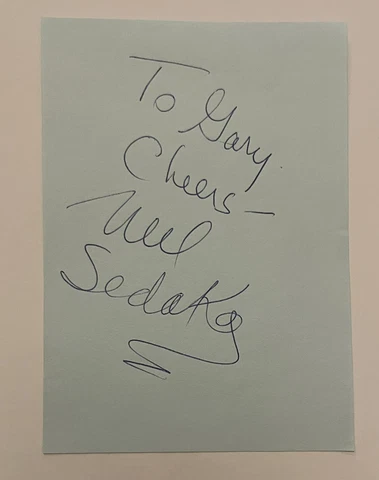 To Gary.
Cheers –
Neil
Sedaka